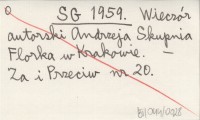 SG 1959. Wieczór
autorski Andrzeja Skupnia
Florka w Krakowie. —
Za i Przeciw nr 20.